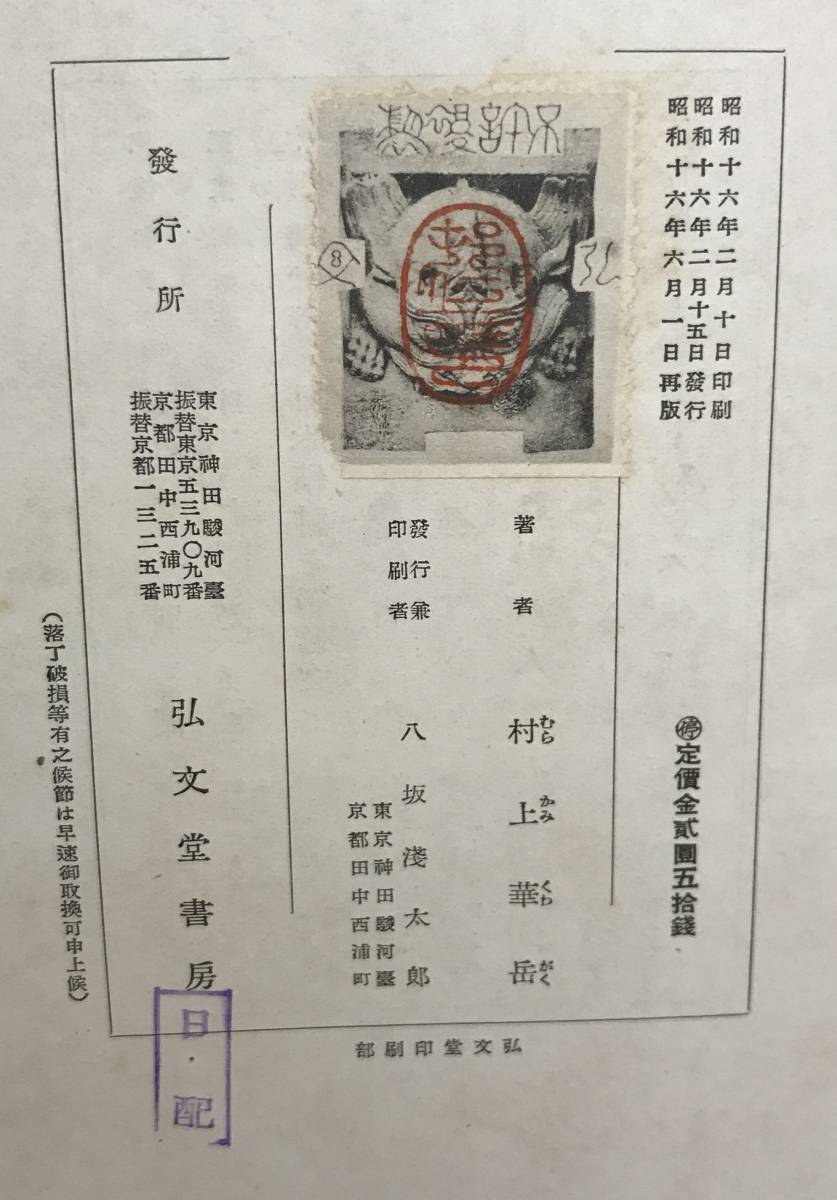 昭和十六年二月十日印刷
昭和十六年二月十五日發行
昭和十六年六月一日再版
㊡定價金貳圓五拾錢
不許複製
弘
8
著者
村上華岳
むらかみくわがく
發行兼
印刷者
八坂淺太郎
東京神田駿河臺
京都田中西浦町
發行所
東京神田駿河臺
振替東京五三九〇九番
京都田中西浦町
振替京都一三二五番
弘文堂書房
(落丁破損等有之候節は早速御取換可申上候)
弘文堂印刷部
日・配